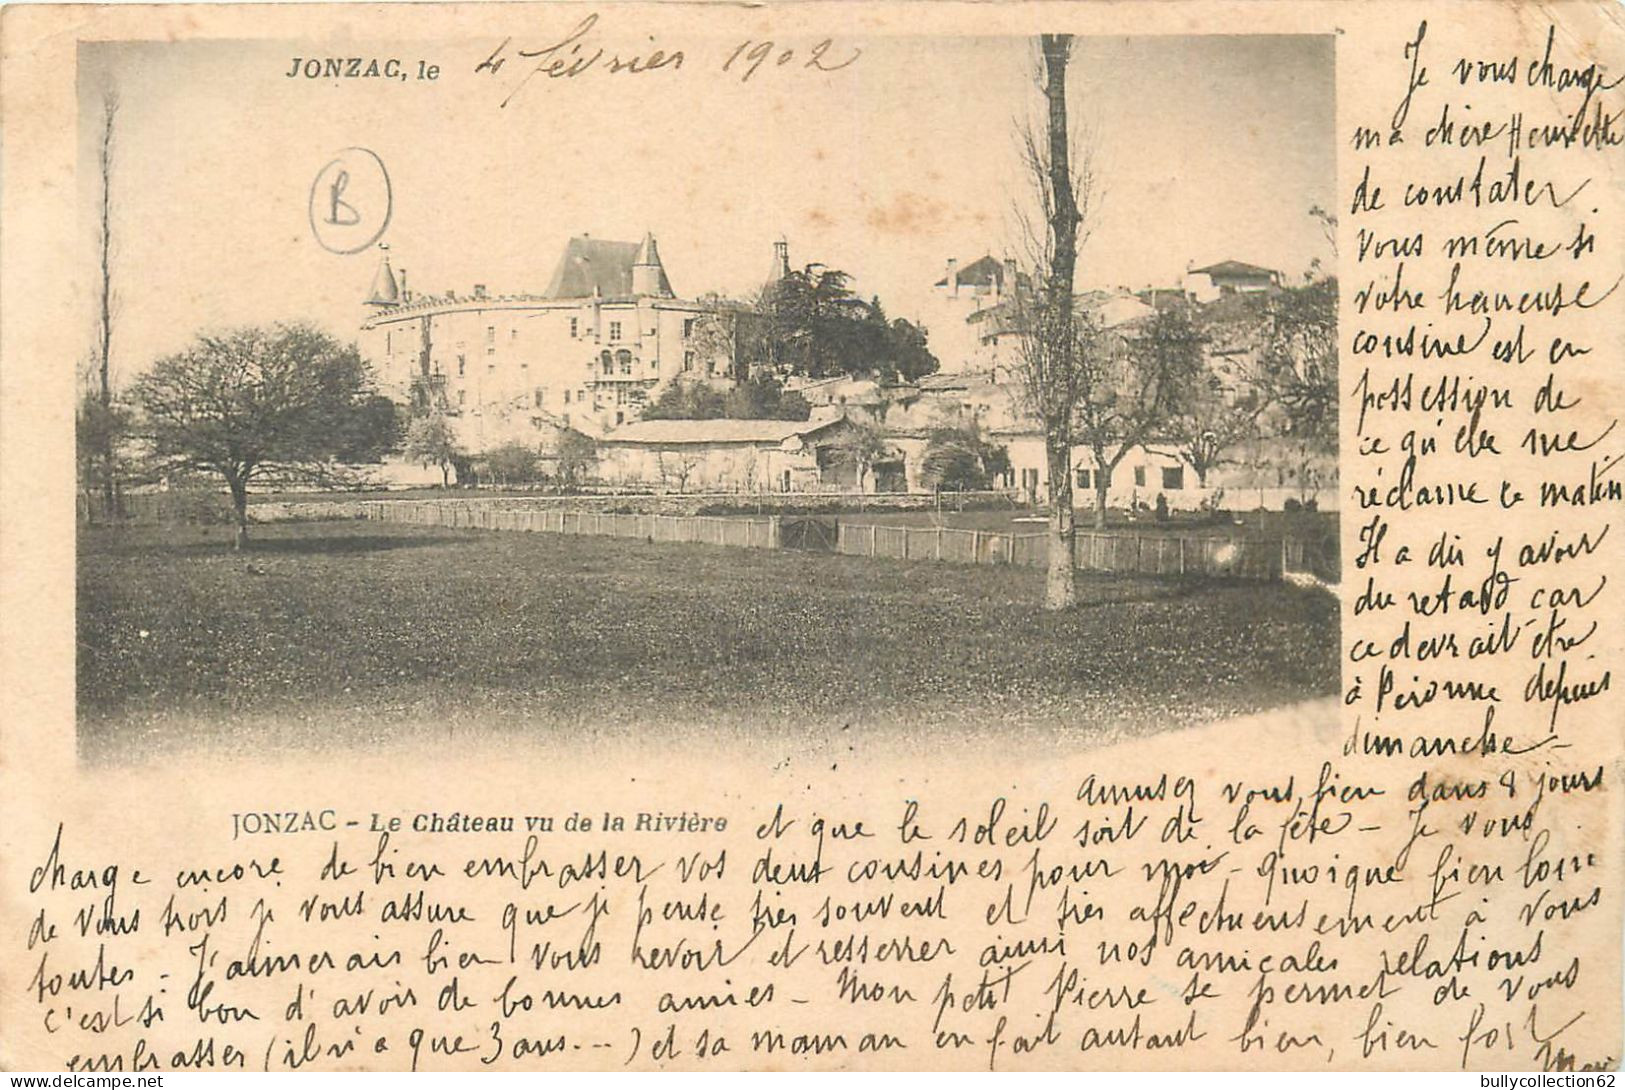 JONZAC, le 4 février 1902
B
Je vous charge
ma chère Henriette
de constater
vous même si
votre heureuse
cousine est en
possession de
ce qu'elle me
réclame ce matin
Il a dû y avoir
du retard car
ce devrait être
à Péronne depuis
dimanche -
Amusez vous bien dans 8 jours
JONZAC - Le Château vu de la Rivière
et que le soleil soit de la fête - Je vous
charge encore de bien embrasser vos deux cousines pour moi - Quoique bien loin
de vous trois je vous assure que je pense très souvent et très affectueusement à vous
toutes - J'aimerais bien vous revoir et resserrer ainsi nos amicales relations
c'est si bon d'avoir de bonnes amies - Mon petit Pierre se permet de vous
embrasser (il n'a que 3 ans...) et sa maman en fait autant bien, bien fort
bullycollection62